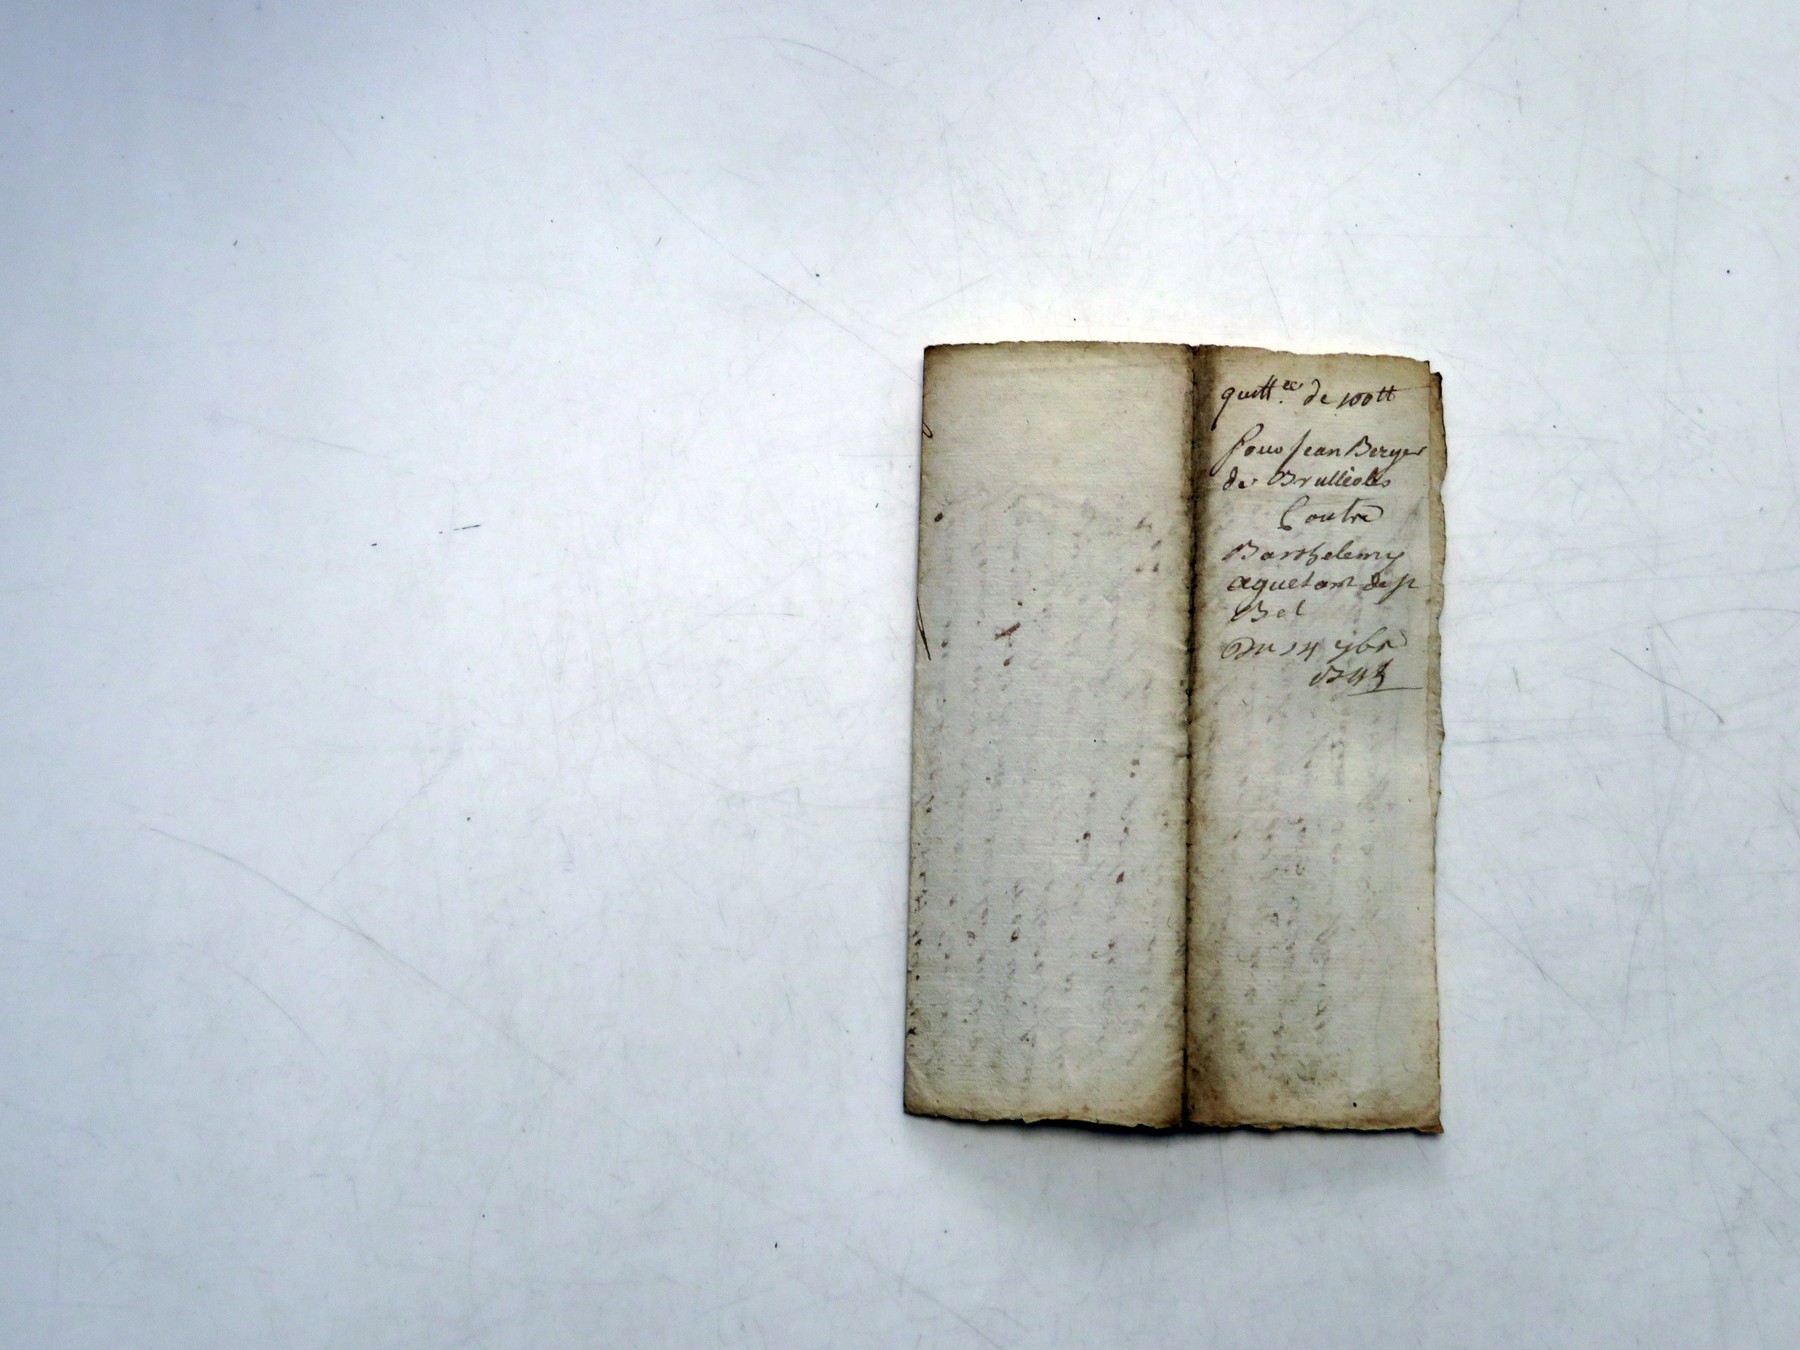 quitt.ce de 100tt
pour Jean Berger
de Brullioles
Contre
Barthelemy
aguetant de st
Bel
Du 14 9bre